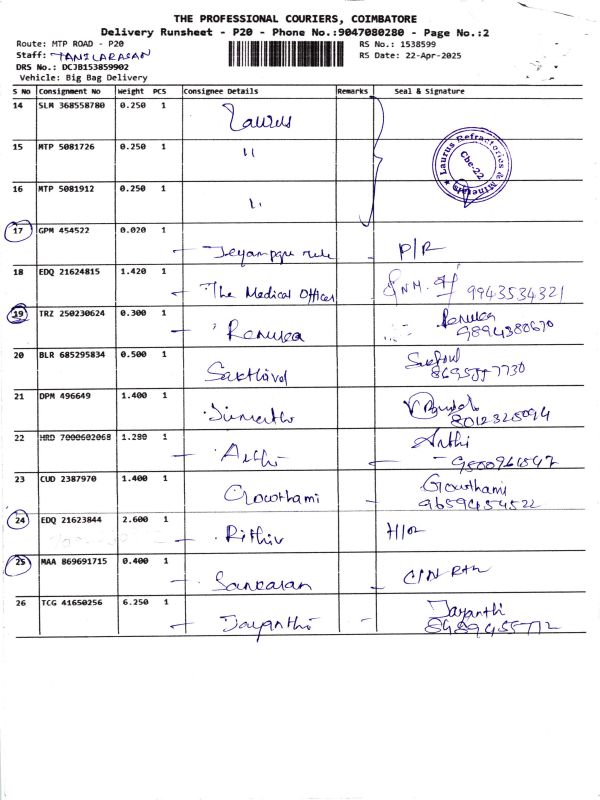 THE PROFESSIONAL COURIERS, COIMBATORE
Delivery Runsheet - P20 - Phone No.:9047080280 - Page No.:2
Route: MTP ROAD - P20
RS No.: 1538599
Staff: TAMILARASAN
RS Date: 22-Apr-2025
DRS No.: DCJB153859902
Vehicle: Big Bag Delivery
S No Consignment No Weight PCS Consignee Details Remarks Seal & Signature
14 SLM 368558780 0.250 1 Laurus
15 MTP 5081726 0.250 1 "
Laurus Refractories & Minerals
Cbe-22
16 MTP 5081912 0.250 1 "
17 GPM 454522 0.020 1 P/R
18 EDQ 21624815 1.420 1 The Medical Officer 9943534321
19 TRZ 250230624 0.300 1 Renuka Renuka
9894380670
20 BLR 685295834 0.500 1 Sakthivel
21 DPM 496649 1.400 1 8012325094
22 HRD 7000602068 1.280 1 Arthi Arthi
23 CUD 2387970 1.400 1 Gowthami Gowthami
9659454522
24 EDQ 21623844 2.600 1 Rithiv
25 MAA 869691715 0.400 1 Sankaran
26 TCG 41650256 6.250 1 Jayanthi Jayanthi